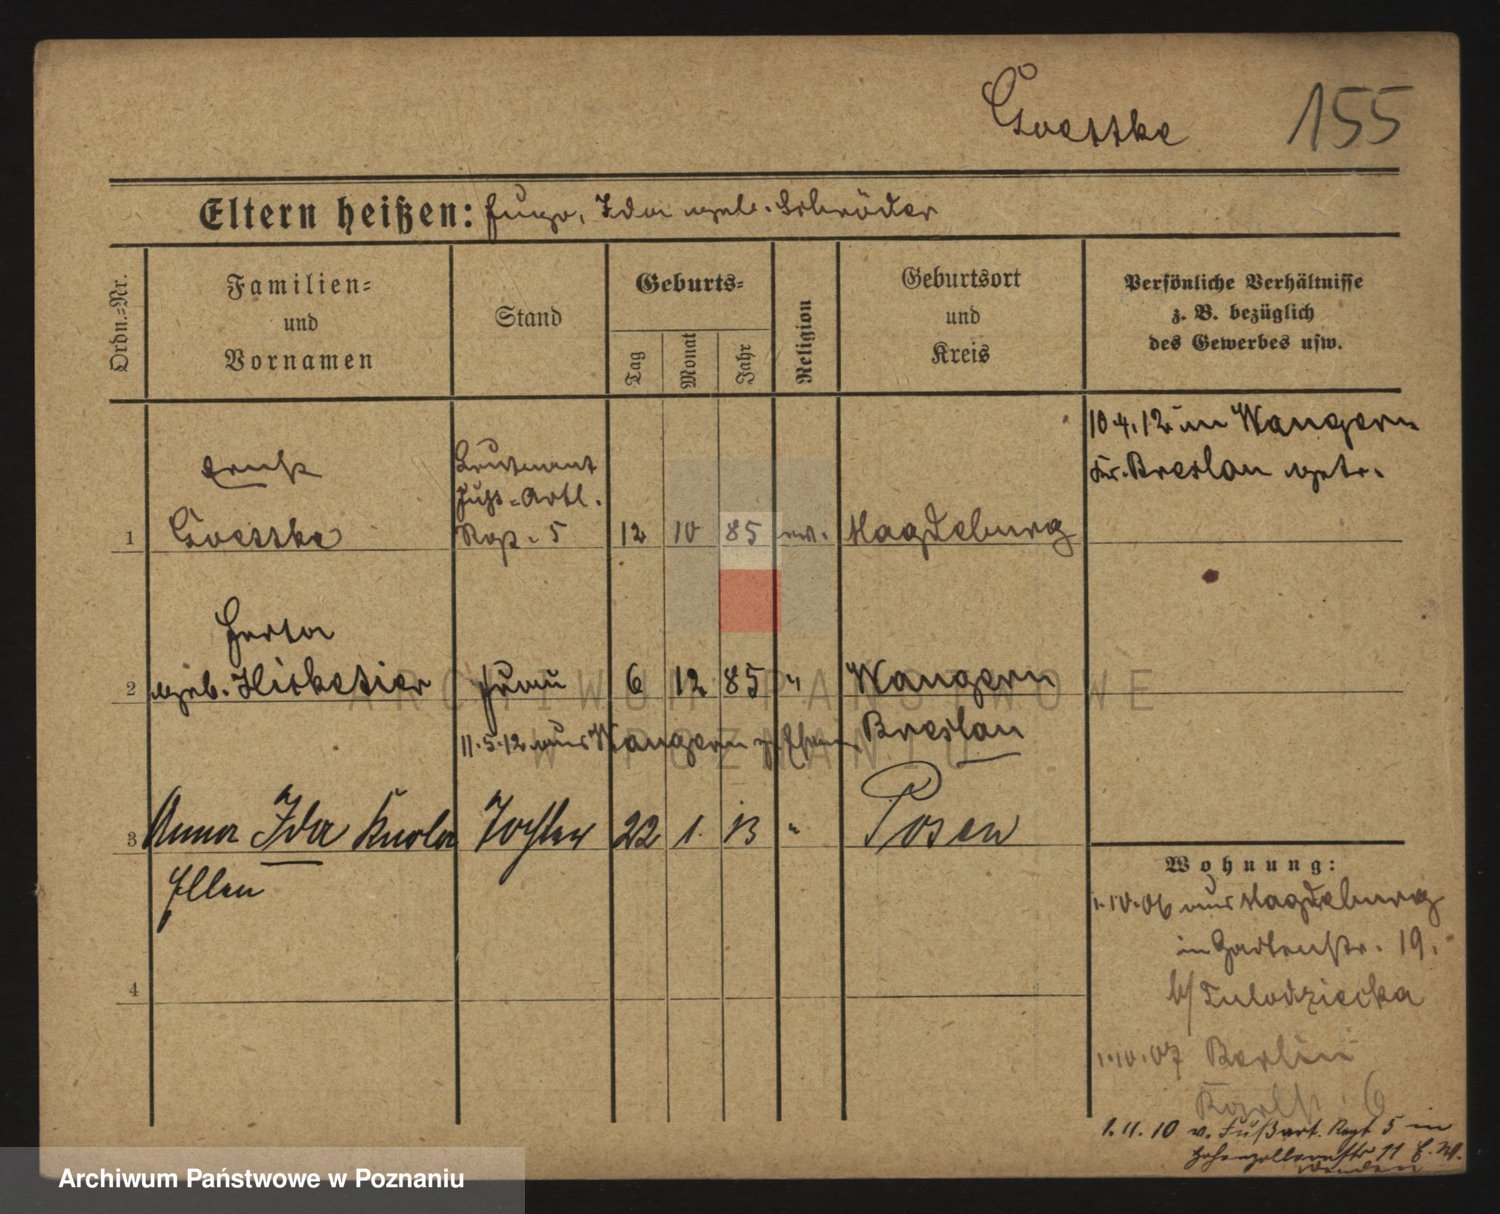 Goettke 155
Eltern heißen: Hugo, Ida geb. Schröder
Ordn.=Nr.
Familien=
und
Vornamen
Stand
Geburts=
Tag
Monat
Jahr
Religion
Geburtsort
und
Kreis
Persönliche Verhältnisse
z. B. bezüglich
des Gewerbes usw.
10.4.12 in Wangern
Kr. Breslau getr.
Ernst
Leutnant
Fuß=Artl.
1 Goettke 5 12 10 85 ev. Magdeburg
Herta
2 geb. Frau 6 12 85 " Wangern
11.5.12 aus Wangern Breslau
3 Anna Ida Karla Tochter 22 1. 13 " Posen
Ellen
4
Wohnung:
1.10.06 aus Magdeburg
in Gartenstr. 19.
b/ Tulodziecka
1.10.07 Berlin
6
1.11.10 v. Fußart. Regt 5 in
Hohenzollernstr 11
ARCHIWUM PAŃSTWOWE
W POZNANIU
Archiwum Państwowe w Poznaniu